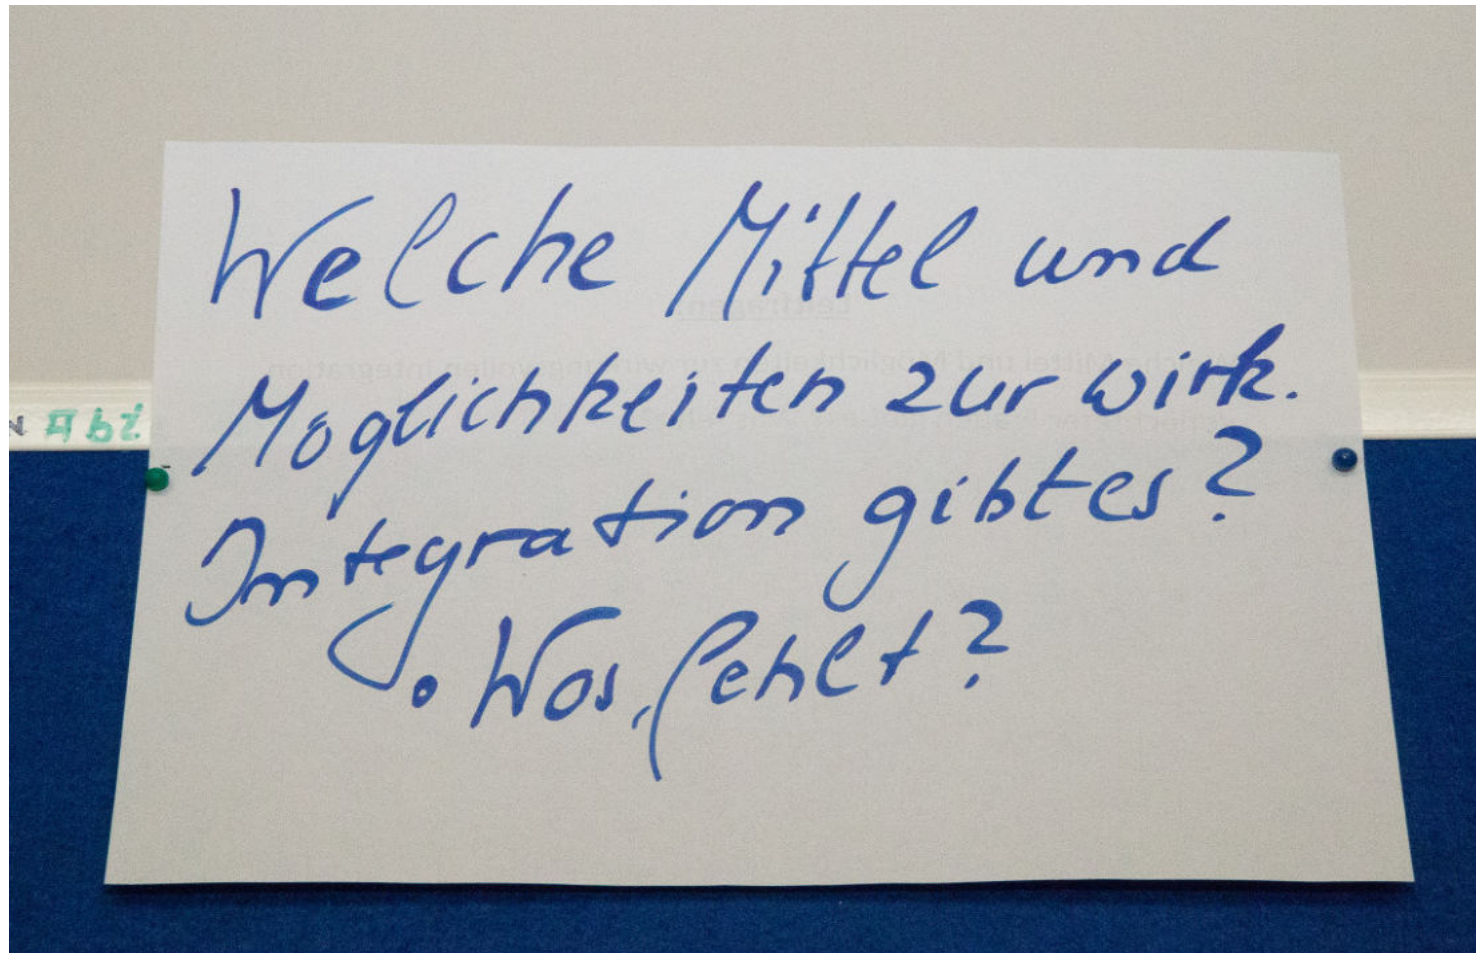 Welche Mittel und
Moglichkeiten zur wirk.
Integration gibt es?
• Was fehlt?
Abt.